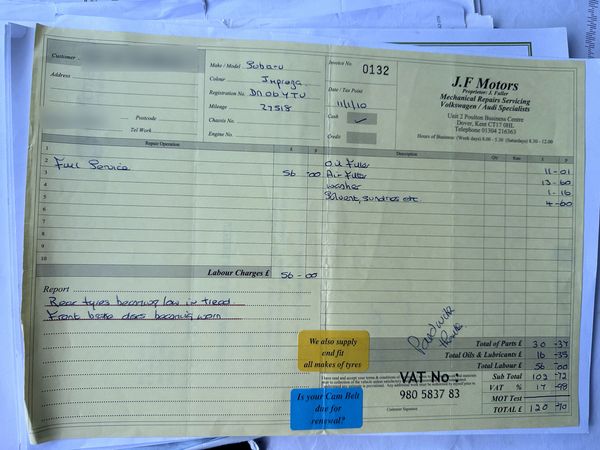 Customer
Address
Postcode
Tel Work
Make / Model Subaru
Colour Impreza
Registration No.
Mileage 27518
Chassis No.
Engine No.
Invoice No. 0132
Date / Tax Point
11/1/10
Cash ✓
Credit
J.F Motors
Proprietor: J. Fuller
Mechanical Repairs Servicing
Volkswagen / Audi Specialists
Unit 2 Poulton Business Centre
Dover, Kent CT17 0HL
Telephone 01304 216363
Hours of Business (Week days) 8.00 - 5.30 (Saturdays) 8.30 - 12.00
Repair Operation £ p
Description Qty Rate £ p
1
2 Full Service 56-00
3
4
5
6
7
8
9
10
Oil Filter 11-01
Air Filter 13-60
washer 1-16
Solvent, sundries etc. 4-60
Labour Charges £ 56-00
Report
Rear tyres becoming low in tread
Front brake discs becoming worn
We also supply
and fit
all makes of tyres
Is your Cam Belt
due for
renewal?
Paid with
Thanks
VAT No:
980 5837 83
Customer Signature
Total of Parts £ 30-37
Total Oils & Lubricants £ 16-35
Total Labour £ 56-00
Sub Total 102-72
VAT % 17-98
MOT Test
TOTAL £ 120-70